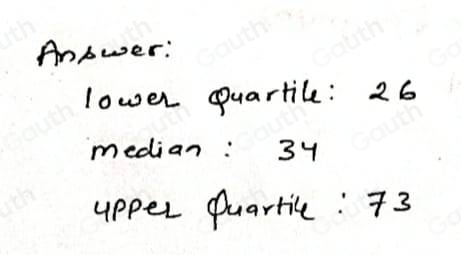 Answer:
lower quartile: 26
median : 34
upper quartile : 73